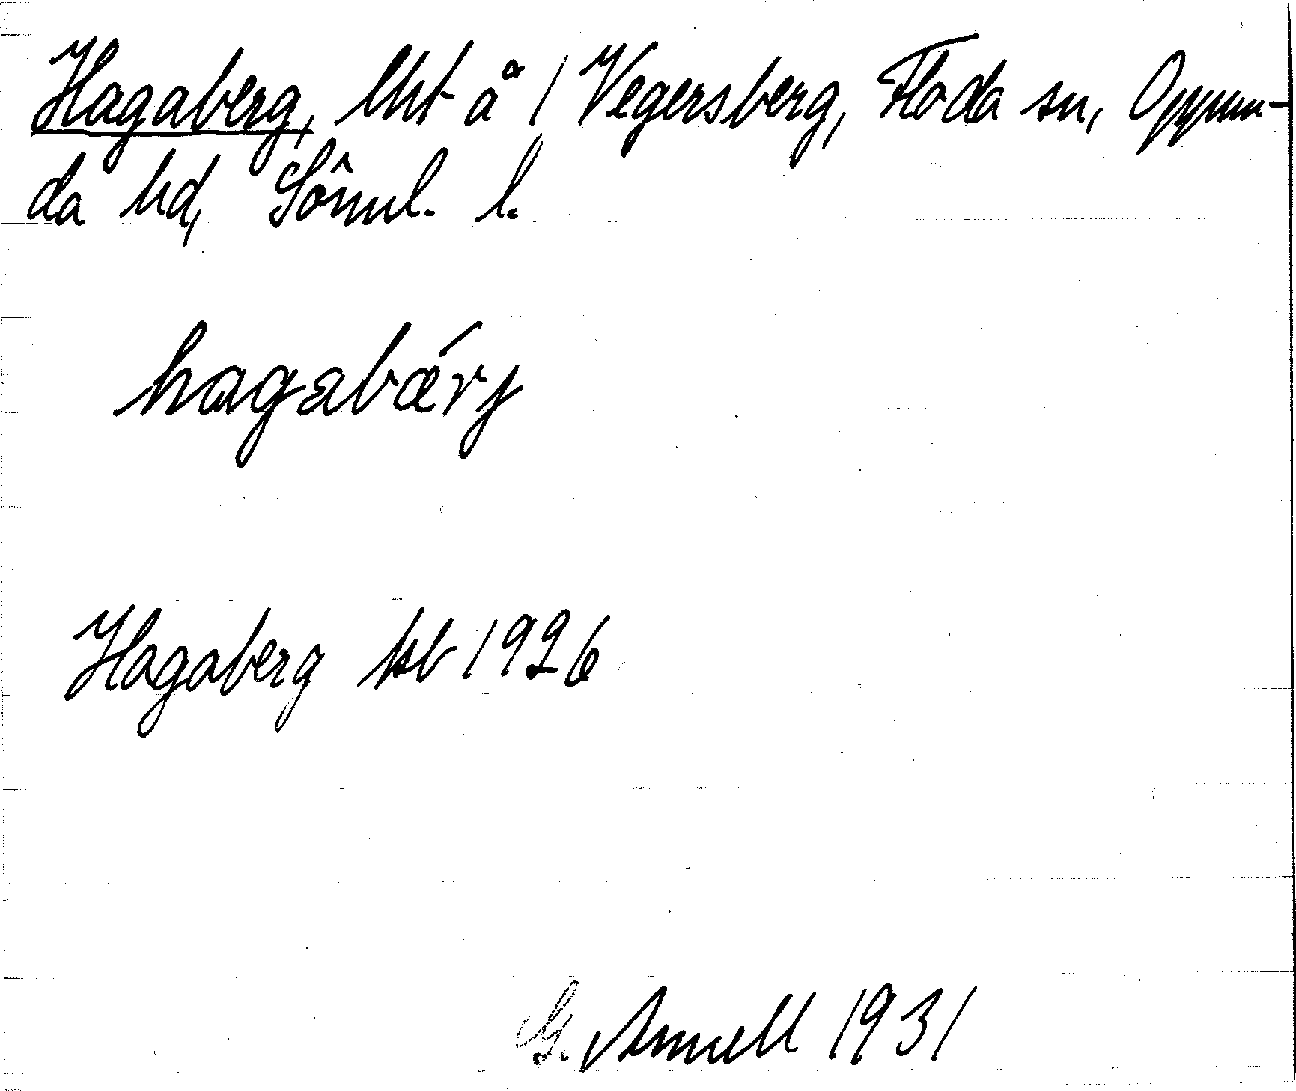 Hagaberg, lht å 1 Vegersberg, Floda sn, Oppun-
da hd, Söml. l.
hagabärj
Hagaberg kb 1926
G. Arnell 1931